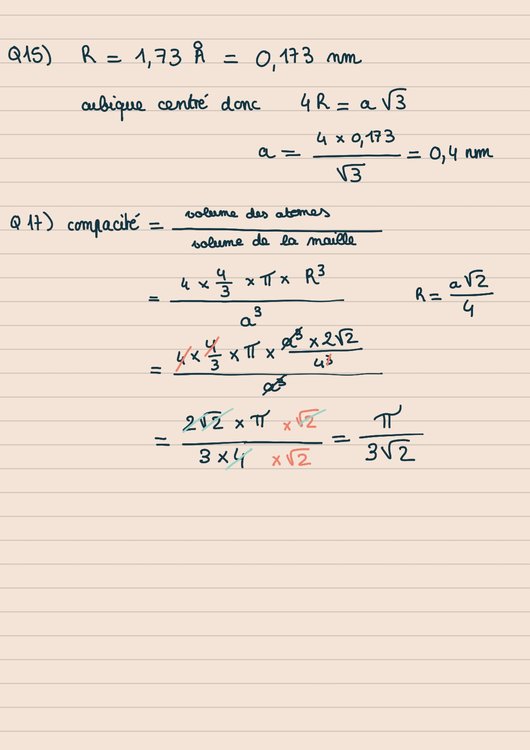 Q15) R = 1,73 Å = 0,173 nm
cubique centré donc 4R = a√3
a = (4 x 0,173)/√3 = 0,4 nm
Q17) compacité = volume des atomes / volume de la maille
= (4 x 4/3 x π x R³)/a³ R = a√2/4
= (4 x 4/3 x π x (a³ x 2√2)/4³)/a³
= (2√2 x π x √2)/(3 x 4 x √2) = π/(3√2)